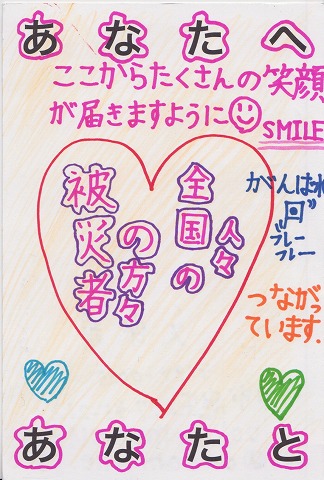 あなたへ
ここからたくさんの笑顔
が届きますように
SMILE
人々
全国の
の方々
被災者
がんばれ
フレー
フレー
つながっ
ています.
あなたと